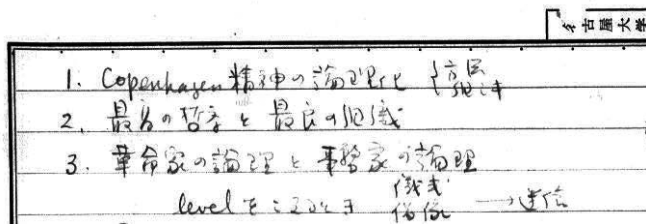 名古屋大学
1. Copenhagen精神の論理化
2. 最高の哲学と最良の組織
3. 革命家の論理と事務家の論理
levelをこえるとき 儀式 偶像 →迷信